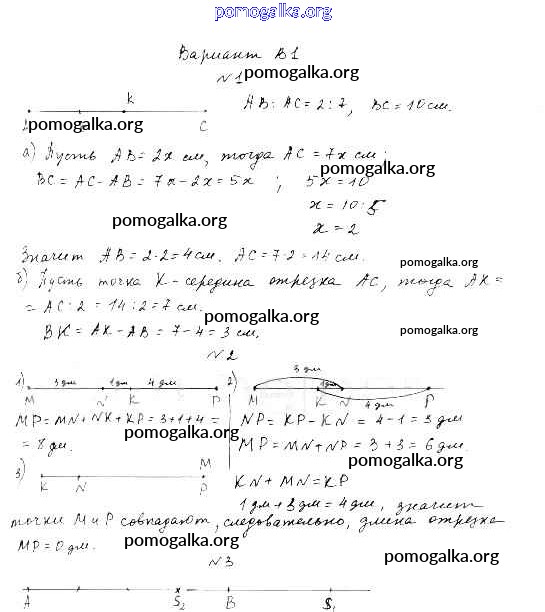 pomogalka.org
Вариант В1
№1 pomogalka.org
K
AB : AC = 2 : 7, BC = 10 см.
pomogalka.org C
а) Пусть AB = 2x см, тогда AC = 7x см.
pomogalka.org
BC = AC - AB = 7x - 2x = 5x ; 5x = 10
x = 10 : 5
pomogalka.org
x = 2
Значит AB = 2·2 = 4 см. AC = 7·2 = 14 см.
pomogalka.org
б) Пусть точка K - середина отрезка AC, тогда AK =
= AC : 2 = 14 : 2 = 7 см.
pomogalka.org
BK = AK - AB = 7 - 4 = 3 см.
pomogalka.org
№2
1) 3 дм 1 дм 4 дм
M N K P
2) 3 дм 1 дм 4 дм
M K N P
MP = MN + NK + KP = 3 + 1 + 4 =
= 8 дм.
NP = KP - KN = 4 - 1 = 3 дм
MP = MN + NP = 3 + 3 = 6 дм.
3) M
K N P
KN + MN = KP
1 дм + 3 дм = 4 дм, значит
точки M и P совпадают, следовательно, длина отрезка
MP = 0 дм.
pomogalka.org
pomogalka.org
№3
A S2 B S1